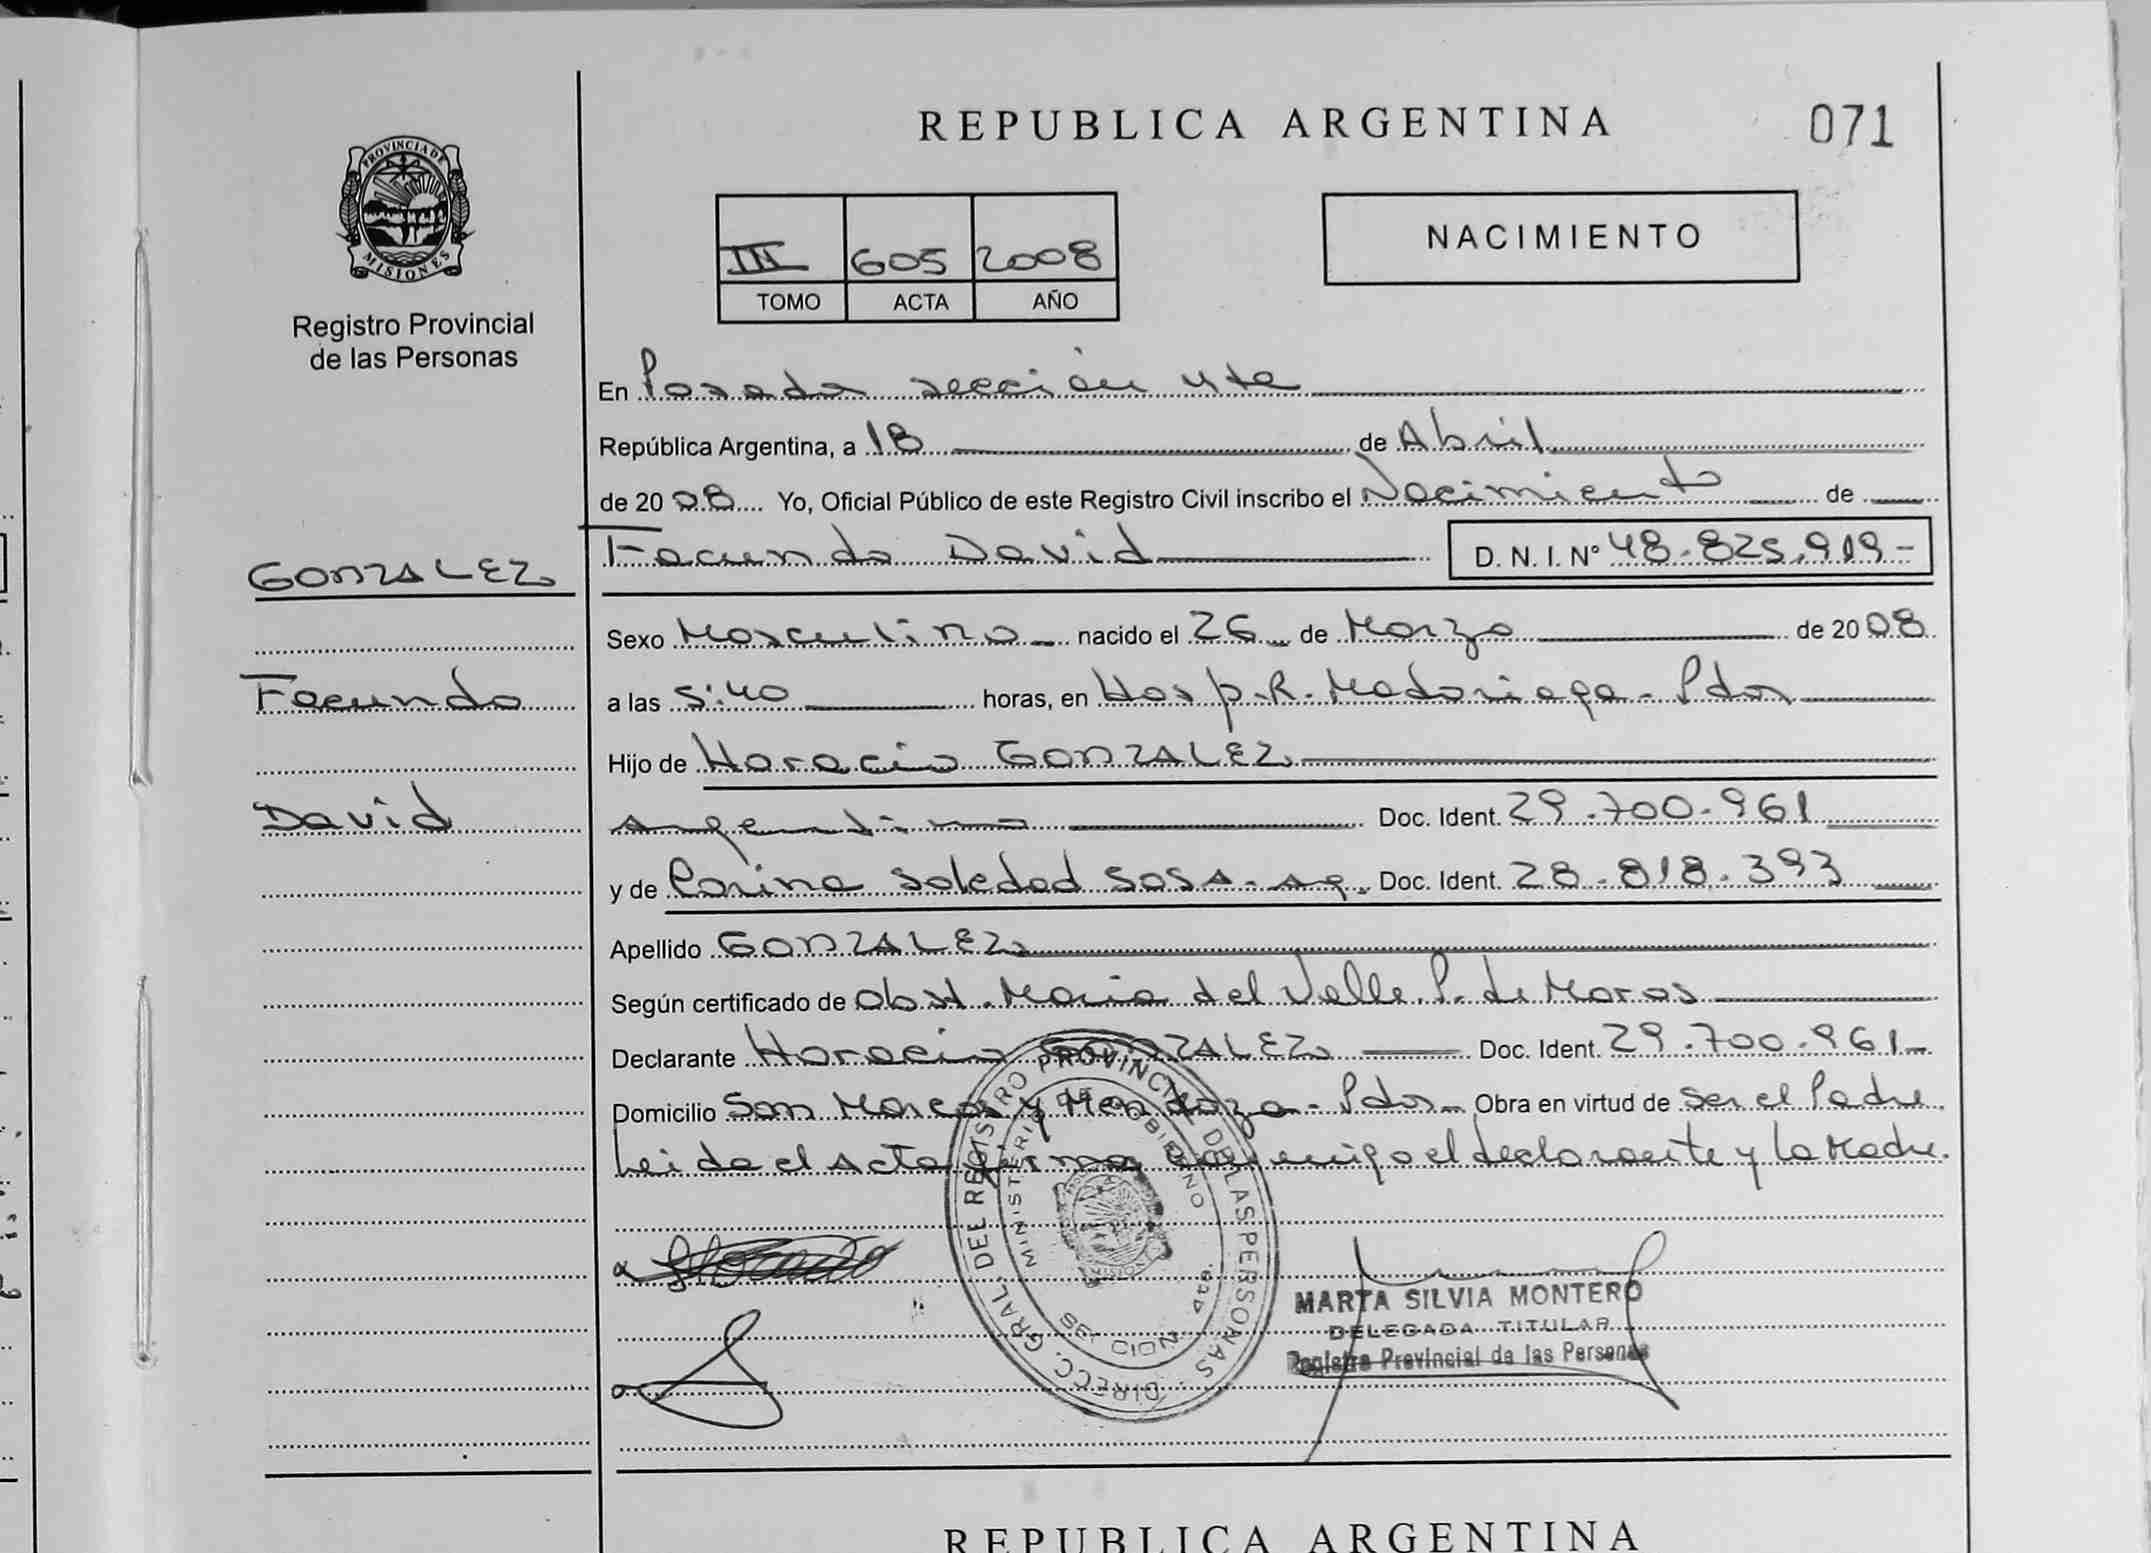 REPUBLICA ARGENTINA
071
PROVINCIA DE
MISIONES
Registro Provincial
de las Personas
III 605 2008
TOMO ACTA AÑO
NACIMIENTO
En Posadas sección 4ta
República Argentina, a 18 de Abril
de 2008 Yo, Oficial Público de este Registro Civil inscribo el Nacimiento de
GONZALEZ
Facundo
David
Facundo David D. N. I. N° 48.825.919-
Sexo Masculino nacido el 26 de Marzo de 2008
a las 5:40 horas, en Hosp. R. Madariaga - Pdas
Hijo de Horacio GONZALEZ
Argentino Doc. Ident. 29.700.961
y de Corina Soledad SOSA - Arg. Doc. Ident. 28.818.393
Apellido GONZALEZ
Según certificado de Obst. Maria del Valle P. de Moras
Declarante Horacio GONZALEZ Doc. Ident. 29.700.961-
Domicilio San Marcos y Mendoza - Pdas Obra en virtud de Ser el Padre.
Leida el Acta firma conmigo el declarante y la Madre.
DIRECC. GRAL. DE REGISTRO PROVINCIAL DE LAS PERSONAS
MINISTERIO DE GOBIERNO
MARTA SILVIA MONTERO
DELEGADA TITULAR
Registro Provincial de las Personas
REPUBLICA ARGENTINA